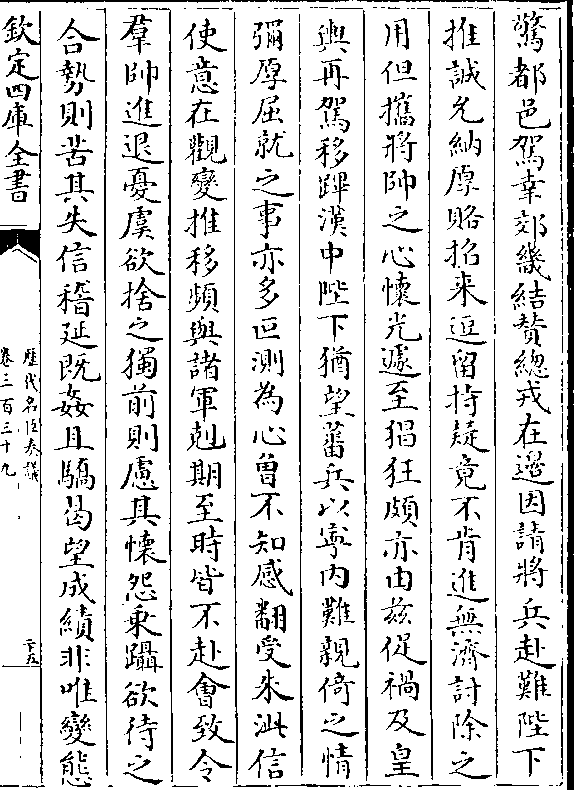 驚都邑駕幸郊畿結賛總戎在邊因請將兵赴難陛下
推誠允納厚賂招来逗留持疑竟不肯進無濟討除之
用但攜將帥之心懷光遽至猖狂頗亦由兹促禍及皇
輿再駕移蹕漢中陛下猶望蕃兵以寧内難親倚之情
彌厚屈就之事亦多叵測為心曽不知感翻受朱泚信
使意在觀變推移頻與諸軍剋期至時皆不赴會致令
羣帥進退憂虞欲捨之獨前則慮其懷怨乗躡欲待之
合勢則苦其失信稽延既姦且驕曷望成績非唯變態
欽定四庫全書
歴代名臣奏議
卷三百三十九
二十五